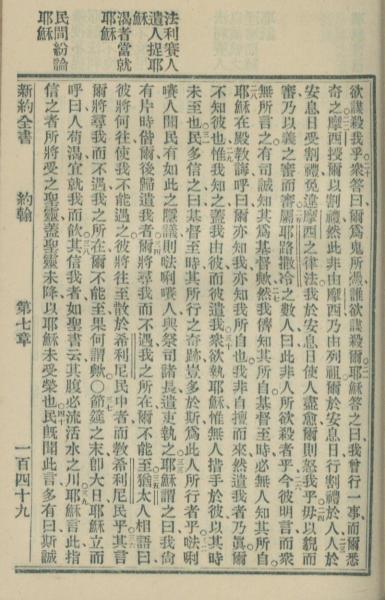 欲謀殺我乎衆答曰爾爲鬼所憑誰欲謀殺爾耶穌答之曰我曾行一事而爾悉
奇之摩西授爾以割禮然此非由摩西乃由列祖爾於安息日行割禮於人人於
安息日受割禮免違摩西之律法我於安息日使人盡愈爾則怒我乎毋以貌而
審乃以義之審而審焉耶路撒冷之數人曰此非人所欲殺者乎今彼明言而衆
無所言之有司誠知其爲基督歟然我儕知其所自基督至時必無人知其所自
耶穌在殿教誨呼曰爾亦知我亦知我所自也我非自擅而來然遣我者乃眞爾
不知彼也惟我知之蓋我由彼而彼遣我衆欲執耶穌惟無人措手於彼以其時
未至也民多信之曰基督至時其所行之奇跡豈多於斯爲此人所行者乎㗲唎
嗪人聞民有如此之隱議則㗲唎嗪人與祭司諸長遣吏執之耶穌謂之曰我尙
有片時偕爾後歸遣我者爾將尋我而不遇我之所在爾不能至猶太人相語曰
彼將何往使我不能遇之彼將往至散於希利尼民中者而教希利尼民乎其言
爾將尋我而不遇我之所在爾不能至果何謂歟〇節筵之末卽大日耶穌立而
呼曰人苟渴宜就我而飲其信我者如聖書云其腹必流活水之川耶穌言此指
信之者所將受之聖靈蓋聖靈未降以耶穌未受榮也民旣聞此言多有曰斯誠
法利賽人
遣人捉耶
穌
渴者當就
耶穌
民間紛論
耶穌
新約全書
約翰
第七章
一百四十九